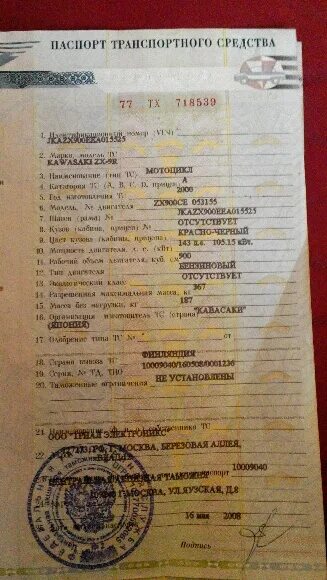 ПАСПОРТ ТРАНСПОРТНОГО СРЕДСТВА
77 ТХ 718539
1. Идентификационный номер (VIN)
JKAZX900EEA015525
2. Марка, модель ТС
KAWASAKI ZX-9R
3. Наименование (тип ТС) МОТОЦИКЛ
4. Категория ТС (A, B, C, D, прицеп) A
5. Год изготовления ТС 2000
6. Модель, № двигателя ZX900CE 053155
7. Шасси (рама) № JKAZX900EEA015525
8. Кузов (кабина, прицеп) № ОТСУТСТВУЕТ
9. Цвет кузова (кабины, прицепа) КРАСНО-ЧЕРНЫЙ
10. Мощность двигателя, л. с. (кВт) 143 л.с. 105.15 кВт.
11. Рабочий объем двигателя, куб. см 900
12. Тип двигателя БЕНЗИНОВЫЙ
13. Экологический класс ОТСУТСТВУЕТ
14. Разрешенная максимальная масса, кг 367
15. Масса без нагрузки, кг 187
16. Организация изготовитель ТС (страна) "КАВАСАКИ"
(ЯПОНИЯ)
17. Одобрение типа ТС № от
18. Страна вывоза ТС ФИНЛЯНДИЯ
19. Серия, № ТД, ТПО 10009040/160508/0001236
20. Таможенные ограничения НЕ УСТАНОВЛЕНЫ
21. ТС
ООО "ТРИАЛ ЭЛЕКТРОНИКС"
22. МОСКВА, БЕРЕЗОВАЯ АЛЛЕЯ,
10009040
ТАМОЖНЯ
Г.МОСКВА, УЛ.ЯУЗСКАЯ, Д.8
16 мая 2008
Подпись